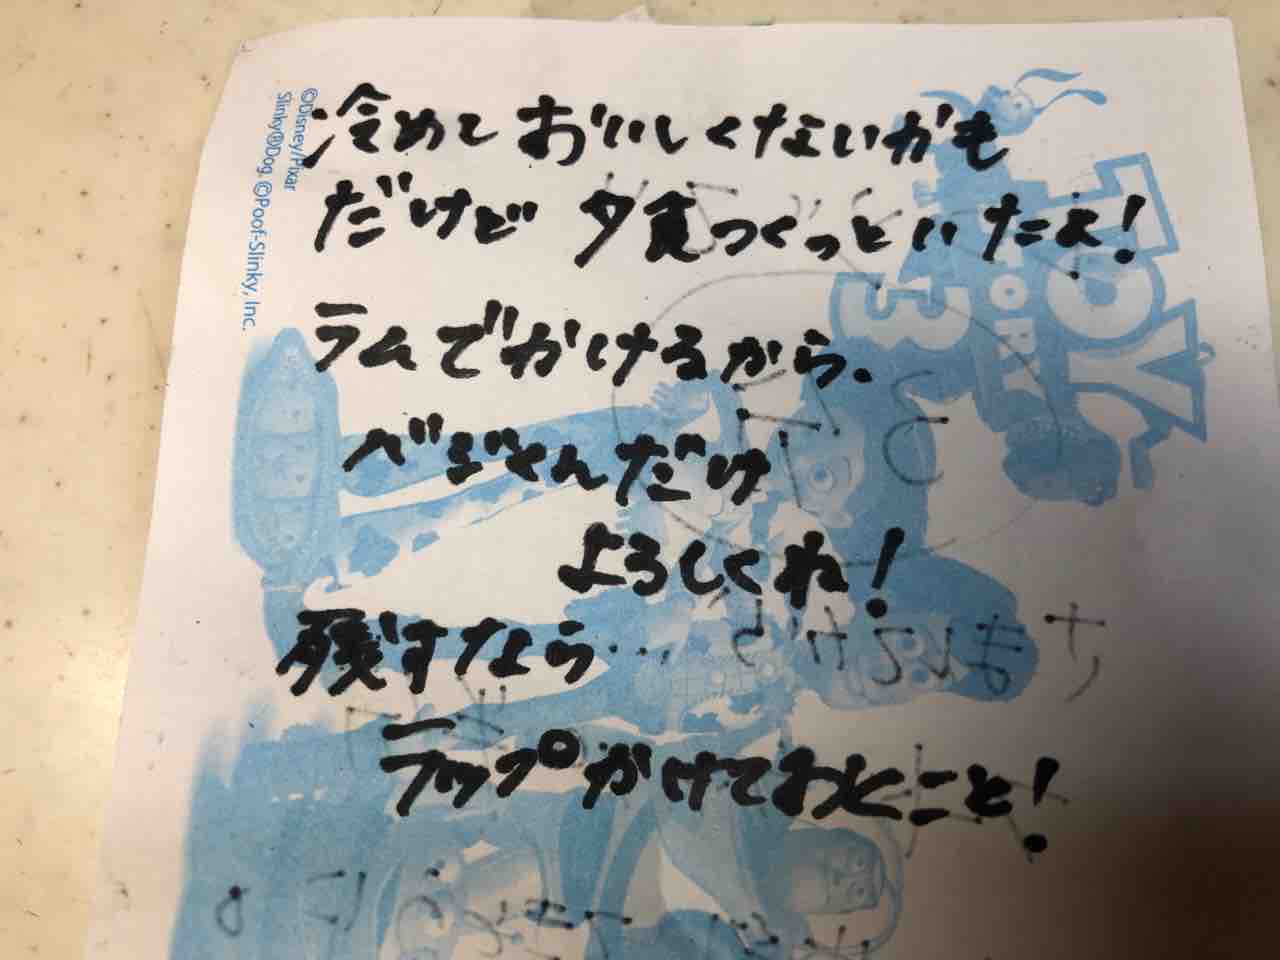 ©Disney/Pixar
Slinky®Dog. ©Poof-Slinky, Inc.
TOY
STORY
3
冷めておいしくないかも
だけど 夕食つくっといたよ!
ラムでかけるから.
べじさんだけ
よろしくね!
残すなら…
ラップかけておくこと!